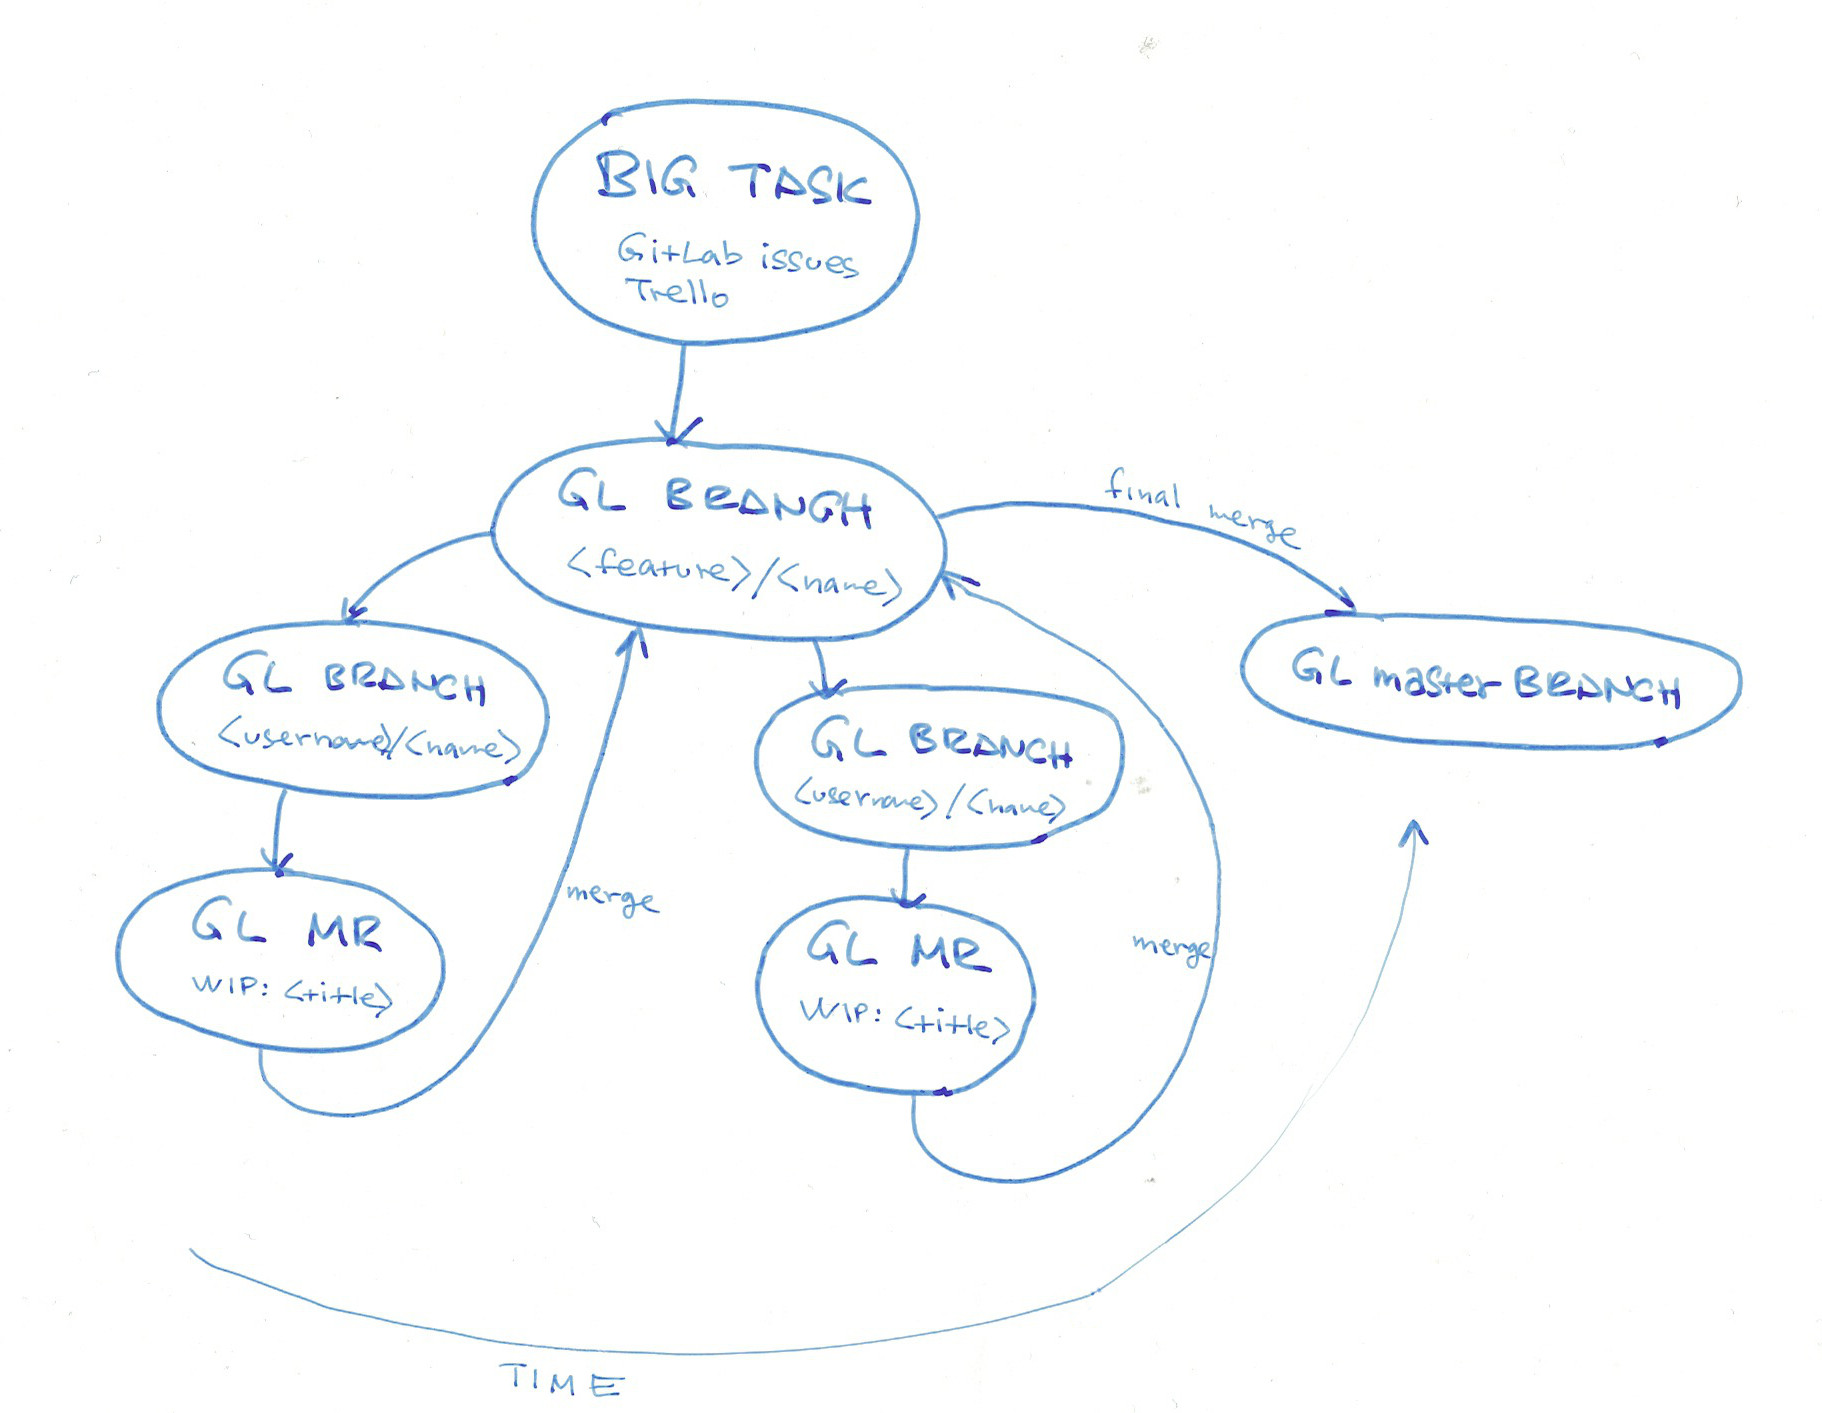 BIG TASK
GitLab issues
Trello
GL BRANCH
<feature>/<name>
final merge
GL BRANCH
<username>/<name>
GL master BRANCH
GL BRANCH
<username>/<name>
merge
GL MR
WIP: <title>
merge
GL MR
WIP: <title>
TIME